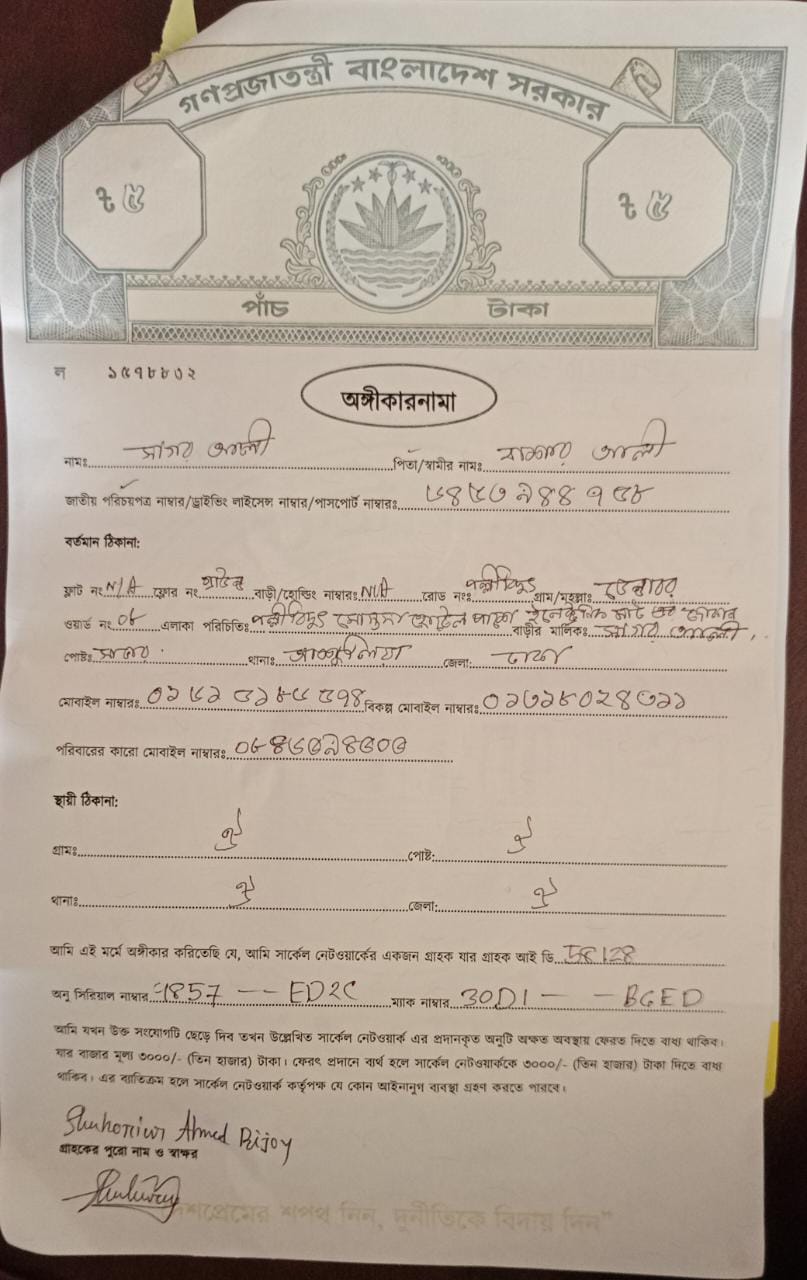 গণপ্রজাতন্ত্রী বাংলাদেশ সরকার
৳ ৫ ৳ ৫
পাঁচ টাকা
ল ১৫৭৮৮৩২
অঙ্গীকারনামা
নামঃ সাগর আলী পিতা/স্বামীর নামঃ আলী
জাতীয় পরিচয়পত্র নাম্বার/ড্রাইভিং লাইসেন্স নাম্বার/পাসপোর্ট নাম্বারঃ
বর্তমান ঠিকানা:
ফ্লাট নং N/A ফ্লোর নং বাড়ী/হোল্ডিং নাম্বারঃ N/A রোড নংঃ পল্লীবিদ্যুৎ গ্রাম/মহল্লাঃ
ওয়ার্ড নং ০৮ এলাকা পরিচিতিঃ পল্লীবিদ্যুৎ
বাড়ীর মালিকঃ সাগর আলী,
পোষ্টঃ সাভার থানাঃ আশুলিয়া জেলা: ঢাকা
মোবাইল নাম্বারঃ বিকল্প মোবাইল নাম্বারঃ
পরিবারের কারো মোবাইল নাম্বারঃ
স্থায়ী ঠিকানা:
গ্রামঃ ঐ পোষ্ট: ঐ
থানাঃ ঐ জেলা: ঐ
আমি এই মর্মে অঙ্গীকার করিতেছি যে, আমি সার্কেল নেটওয়ার্কের একজন গ্রাহক যার গ্রাহক আই ডি 58128
অনু সিরিয়াল নাম্বার 1857 -- ED2C ম্যাক নাম্বার 30D1 - - BGED
আমি যখন উক্ত সংযোগটি ছেড়ে দিব তখন উল্লেখিত সার্কেল নেটওয়ার্ক এর প্রদানকৃত অনুটি অক্ষত অবস্থায় ফেরত দিতে বাধ্য থাকিব।
যার বাজার মূল্য ৩০০০/- (তিন হাজার) টাকা। ফেরৎ প্রদানে ব্যর্থ হলে সার্কেল নেটওয়ার্ককে ৩০০০/- (তিন হাজার) টাকা দিতে বাধ্য
থাকিব। এর ব্যতিক্রম হলে সার্কেল নেটওয়ার্ক কর্তৃপক্ষ যে কোন আইনানুগ ব্যবস্থা গ্রহণ করতে পারবে।
Ahmed Bijoy
গ্রাহকের পুরো নাম ও স্বাক্ষর
দেশপ্রেমের শপথ নিন, দুর্নীতিকে বিদায় দিন"